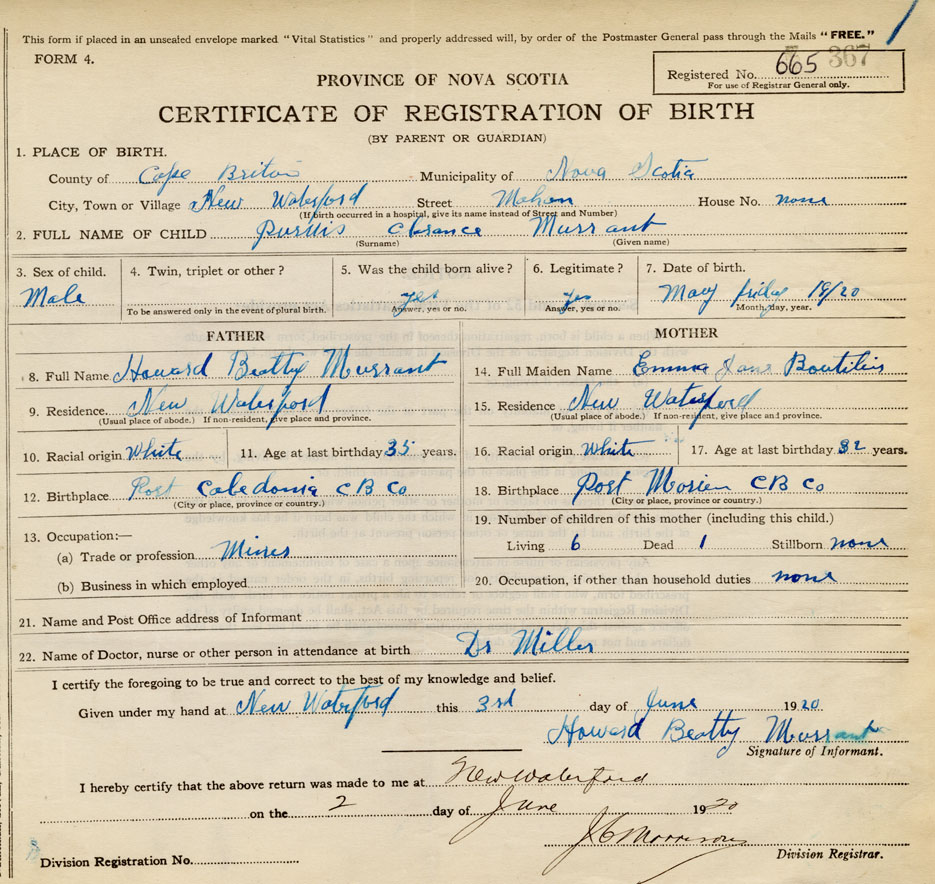 This form if placed in an unsealed envelope marked "Vital Statistics" and properly addressed will, by order of the Postmaster General pass through the Mails "FREE."
FORM 4.
Registered No. 665 367
For use of Registrar General only.
PROVINCE OF NOVA SCOTIA
CERTIFICATE OF REGISTRATION OF BIRTH
(BY PARENT OR GUARDIAN)
1. PLACE OF BIRTH.
County of Cape Briton Municipality of Nova Scotia
City, Town or Village New Waterford Street Mahon House No. none
(If birth occurred in a hospital, give its name instead of Street and Number)
2. FULL NAME OF CHILD Clarance Murrant
(Surname) (Given name)
3. Sex of child. 4. Twin, triplet or other? 5. Was the child born alive? 6. Legitimate? 7. Date of birth.
Male yes yes May friday 19/20
To be answered only in the event of plural birth. Answer, yes or no. Answer, yes or no. Month, day, year.
FATHER MOTHER
8. Full Name Howard Beatty Murrant 14. Full Maiden Name Emma Jane Boutilier
9. Residence New Waterford 15. Residence New Waterford
(Usual place of abode.) If non-resident, give place and province. (Usual place of abode.) If non-resident, give place and province.
10. Racial origin White 11. Age at last birthday 35 years. 16. Racial origin White 17. Age at last birthday 32 years.
12. Birthplace Port Caledonia C B Co 18. Birthplace Port Morien C B Co
(City or place, province or country.) (City or place, province or country.)
13. Occupation:— 19. Number of children of this mother (including this child.)
(a) Trade or profession Miner Living 6 Dead 1 Stillborn none
(b) Business in which employed 20. Occupation, if other than household duties none
21. Name and Post Office address of Informant
22. Name of Doctor, nurse or other person in attendance at birth Dr Miller
I certify the foregoing to be true and correct to the best of my knowledge and belief.
Given under my hand at New Waterford this 3rd day of June 1920
Howard Beatty Murrant
Signature of Informant.
I hereby certify that the above return was made to me at New Waterford
on the 2 day of June 1920
J C Morrison
Division Registration No. Division Registrar.